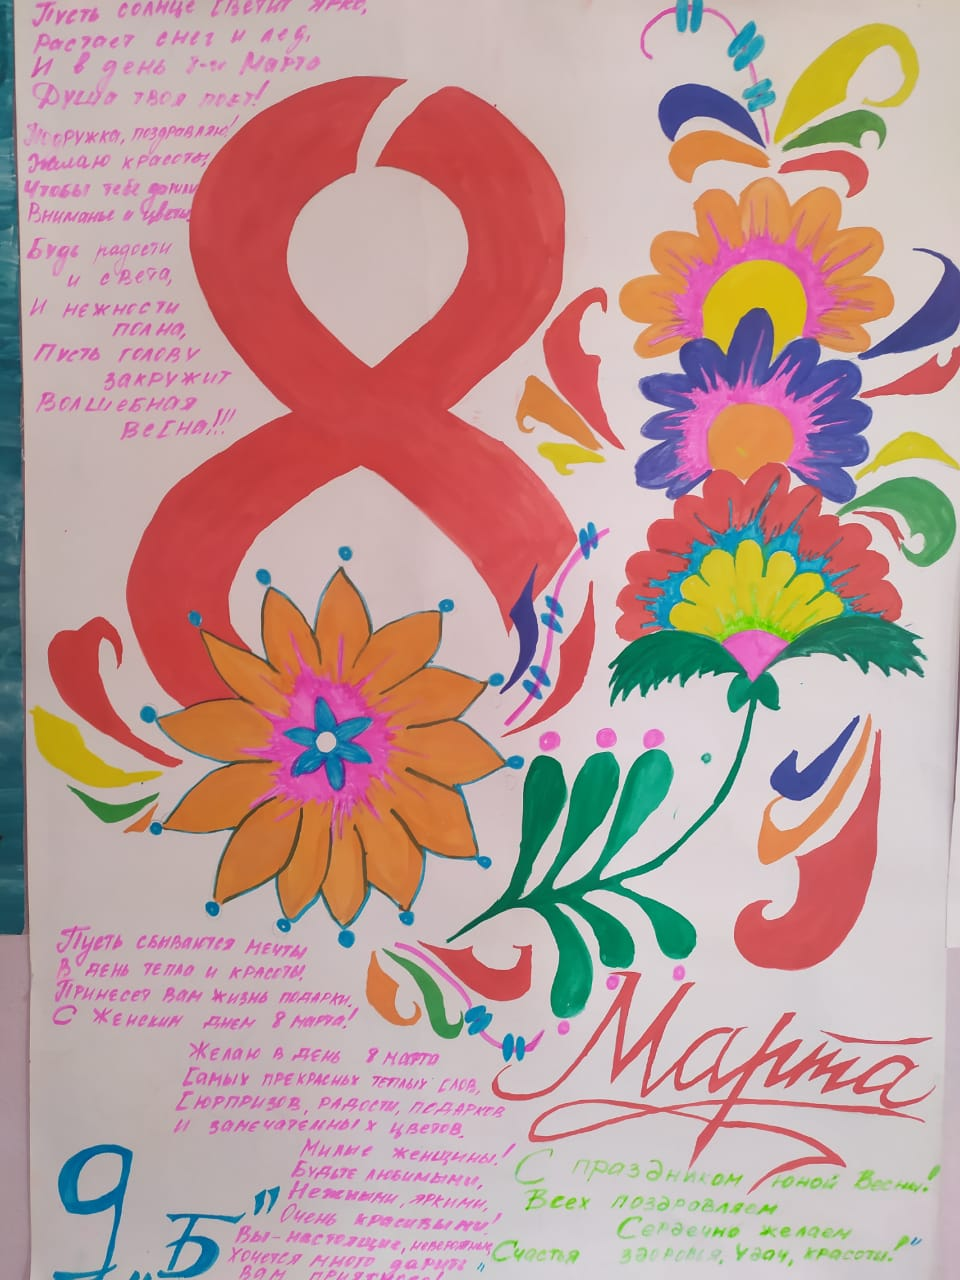 Пусть солнце светит ярко,
Растает снег и лед,
И в день 8-и Марта
Душа твоя поет!
Подружка, поздравляю!
Желаю красоты,
Чтобы тебе дарили
Вниманье и цветы
Будь радости
и света,
И нежности
полна,
Пусть голову
закружит
Волшебная
весна!!!
8
Марта
Пусть сбываются мечты
В день тепло и красоты.
Принесет Вам жизнь подарки.
С Женским днем 8 марта!
Желаю в день 8 марта
Самых прекрасных теплых слов,
Сюрпризов, радости, подарков
и замечательных цветов.
Милые женщины!
Будьте любимыми,
Нежными, яркими,
Очень красивыми!
Вы-настоящие, невероятные,
Хочется много дарить
Вам приятного!
С праздником юной Весны!
Всех поздравляем
Сердечно желаем
Счастья здоровья, удач, красоты!
9 "Б"